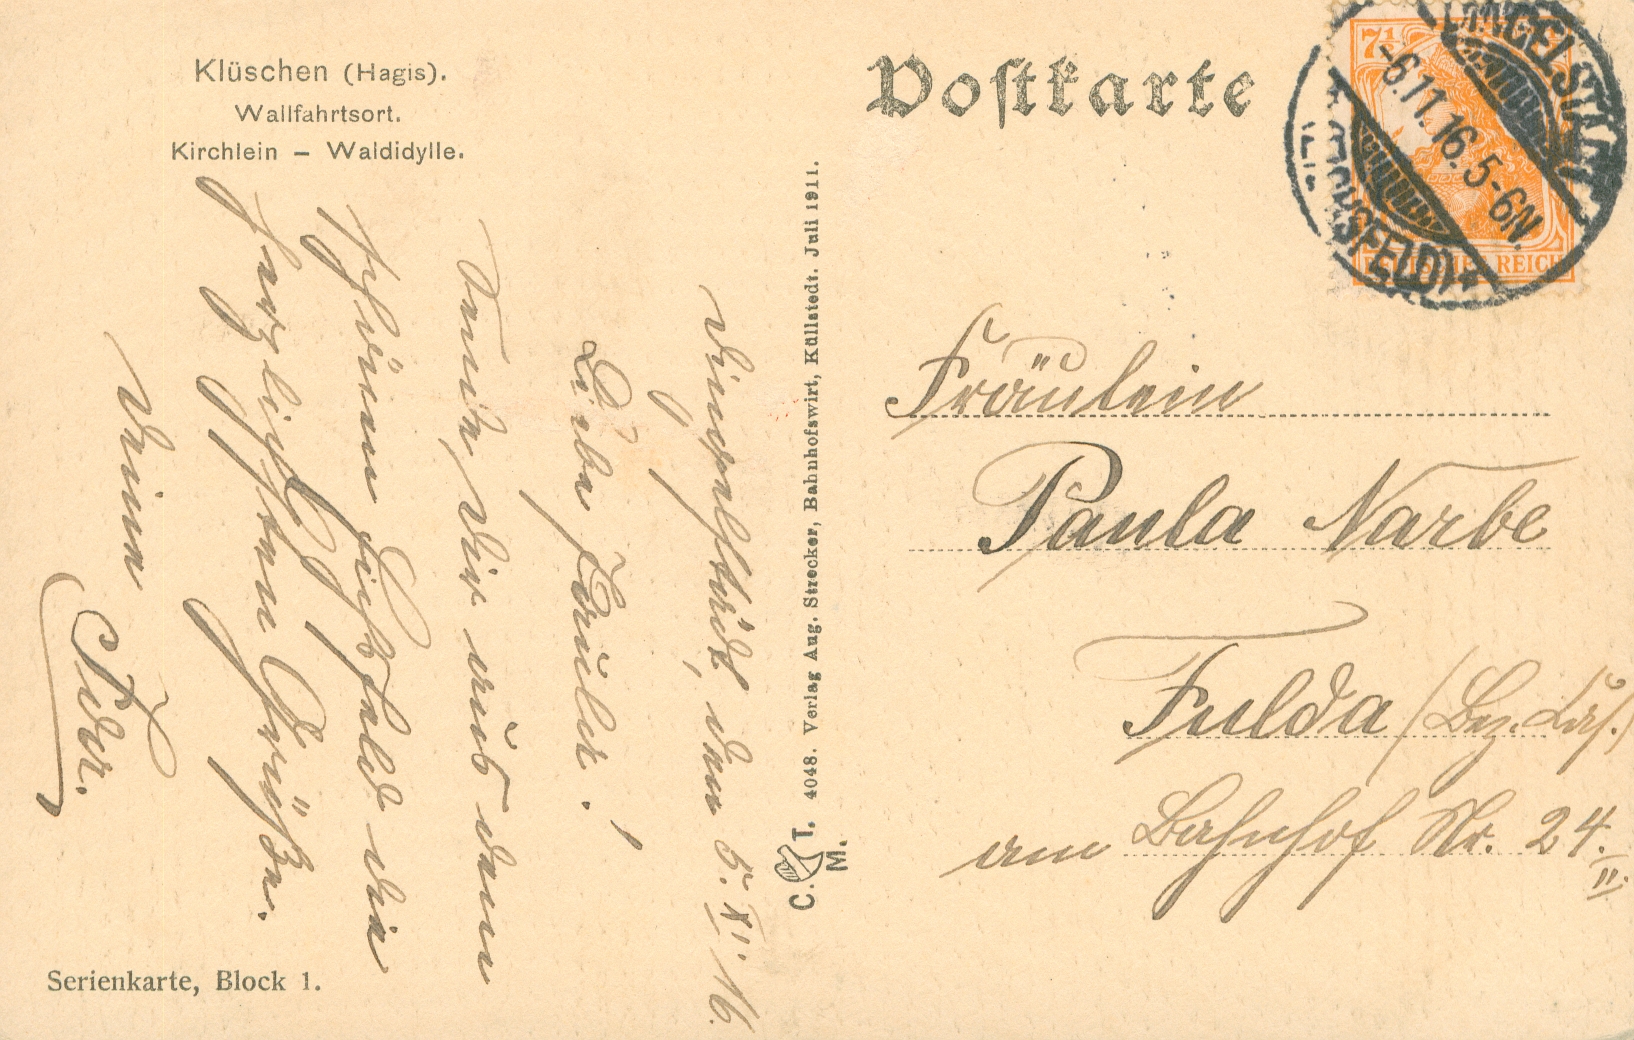 Klüschen (Hagis).
Wallfahrtsort.
Kirchlein – Waldidylle.
Dingelstädt, den 5. XI. 16.
Liebe Paula!
Sende Dir aus dem
schönen Eichsfeld die
herzlichsten Grüße.
Deine
Serienkarte, Block 1.
C. T. M. 4048. Verlag Aug. Strecker, Bahnhofswirt, Küllstedt. Juli 1911.
Postkarte
7½
DEUTSCHES REICH
DINGELSTÄDT
-6.11.16. 5-6N.
(EICHSFELD)
Fräulein
Paula Narbe
Fulda (Bez. Cas.)
am Bahnhof Nr. 24. II.